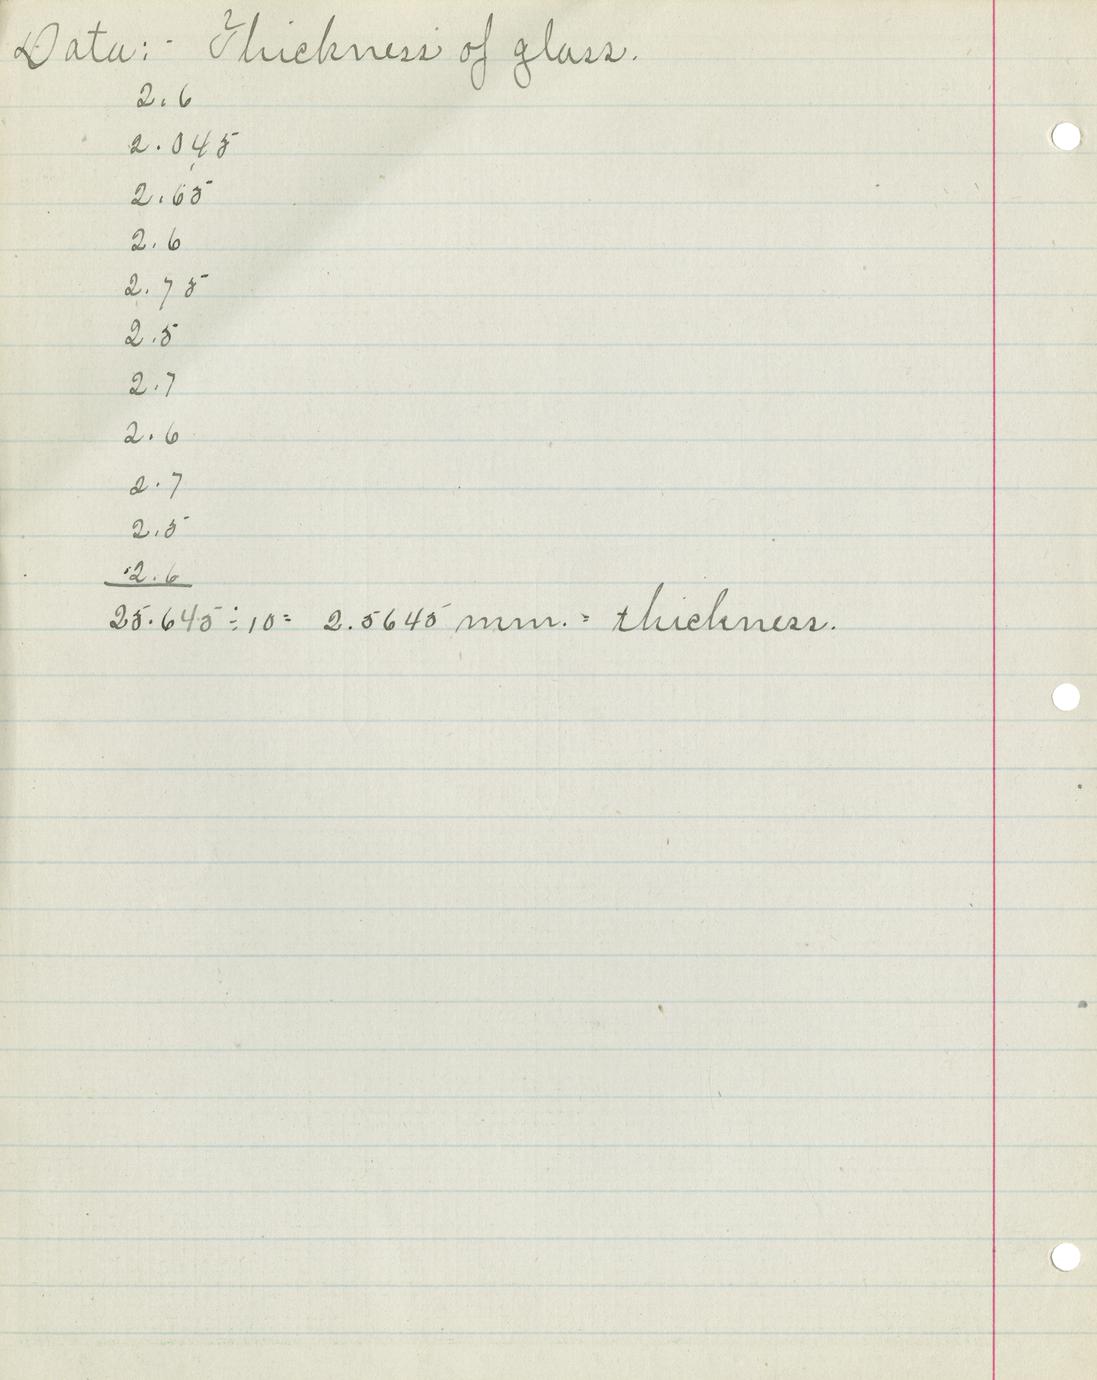 Data:- Thickness of glass.
2.6
2.045
2.65
2.6
2.75
2.5
2.7
2.6
2.7
2.5
2.6
25.645 ÷ 10 = 2.5645 mm. = thickness.